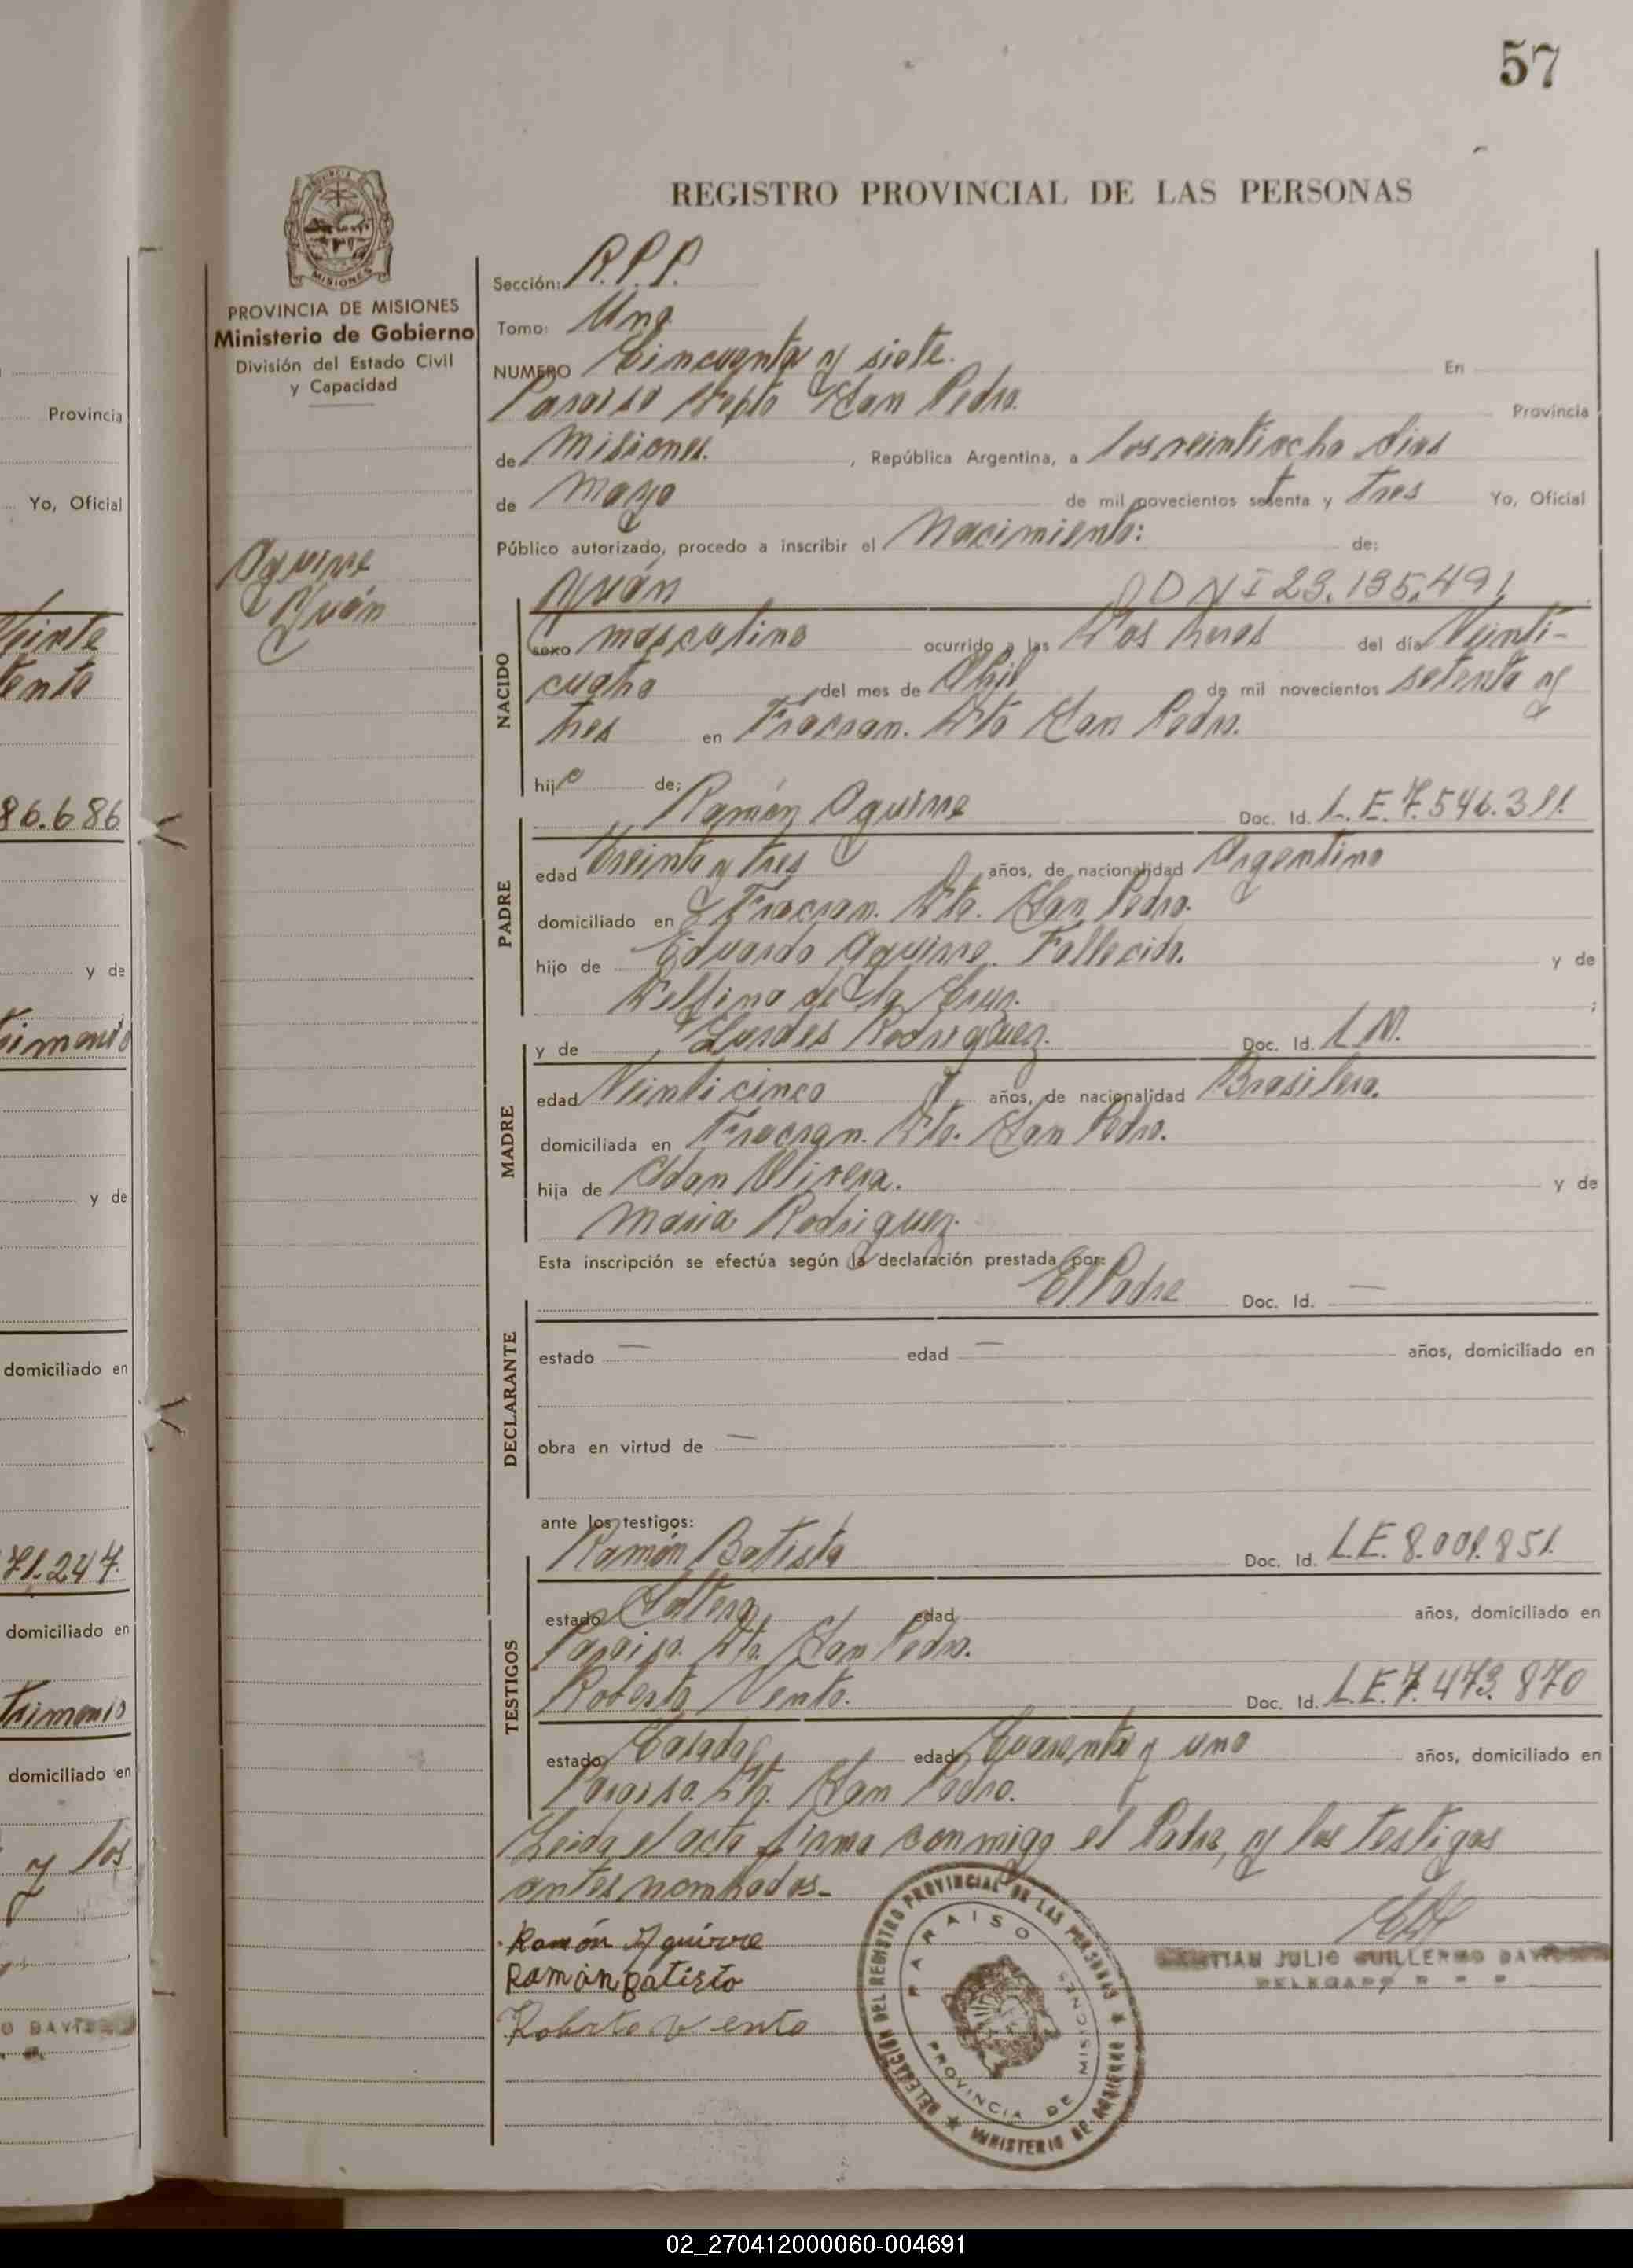 57
REGISTRO PROVINCIAL DE LAS PERSONAS
MISIONES
PROVINCIA DE MISIONES
Ministerio de Gobierno
División del Estado Civil
y Capacidad
Aguirre
Juán
Sección: R.P.P.
Tomo: Uno
NUMERO Cincuenta y siete. En
Paraiso Depto San Pedro. Provincia
de Misiones. , República Argentina, a los veintiocho dias
de Mayo de mil novecientos setenta y Tres Yo, Oficial
Público autorizado, procedo a inscribir el Nacimiento: de:
NACIDO
Juán D N I 23.135.491
sexo masculino ocurrido a las Dos horas del día Veinti-
cuatro del mes de Abril de mil novecientos setenta y
tres en Fracran. Dto San Pedro.
hijo de:
PADRE
Ramón Aguirre Doc. Id. L.E. 7.546.311.
edad Treinta y tres años, de nacionalidad Argentino
domiciliado en Fracran. Dto. San Pedro.
hijo de Eduardo Aguirre. Fallecido. y de
Delfina de la Cruz. ;
MADRE
y de Lurdes Rodriguez. Doc. Id. I.N.
edad Veinticinco años, de nacionalidad Brasilera.
domiciliada en Fracran. Dto. San Pedro.
hija de Adan Olivera. y de
Maria Rodriguez.
Esta inscripción se efectúa según la declaración prestada por:
DECLARANTE
El Padre Doc. Id. —
estado — edad — años, domiciliado en
obra en virtud de —
ante los testigos:
TESTIGOS
Ramón Batista Doc. Id. L.E. 8.001.851.
estado Soltero, edad años, domiciliado en
Paraiso. Dto. San Pedro.
Roberto Vento. Doc. Id. L.E. 7.473.870
estado Casado edad Cuarenta y uno años, domiciliado en
Paraiso. Dto. San Pedro.
Leida el acta firma conmigo el Padre, y los Testigos
antes nombrados.-
Ramón Aguirre
Ramón Batista
Roberto Vento
DELEGACION DEL REGISTRO PROVINCIAL DE LAS PERSONAS
MINISTERIO DE GOBIERNO
PARAISO
PROVINCIA DE MISIONES
JULIO GUILLERMO
DELEGADO R P P
Provincia
Yo, Oficial
Veinte
86.686
y de
y de
domiciliado en
71.247.
domiciliado en
domiciliado en
y los
02_270412000060-004691